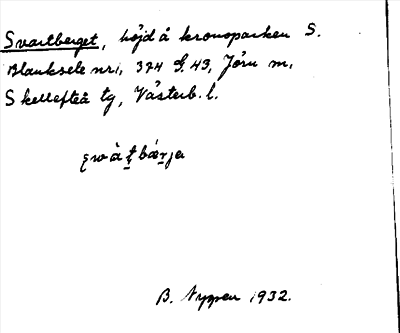 Svartberget, höjd å kronoparken S.
Blanksele nr 1, 374 G. 43, Jörn m,
Skellefteå tg, Västerb. l.
B. Nyppen 1932.